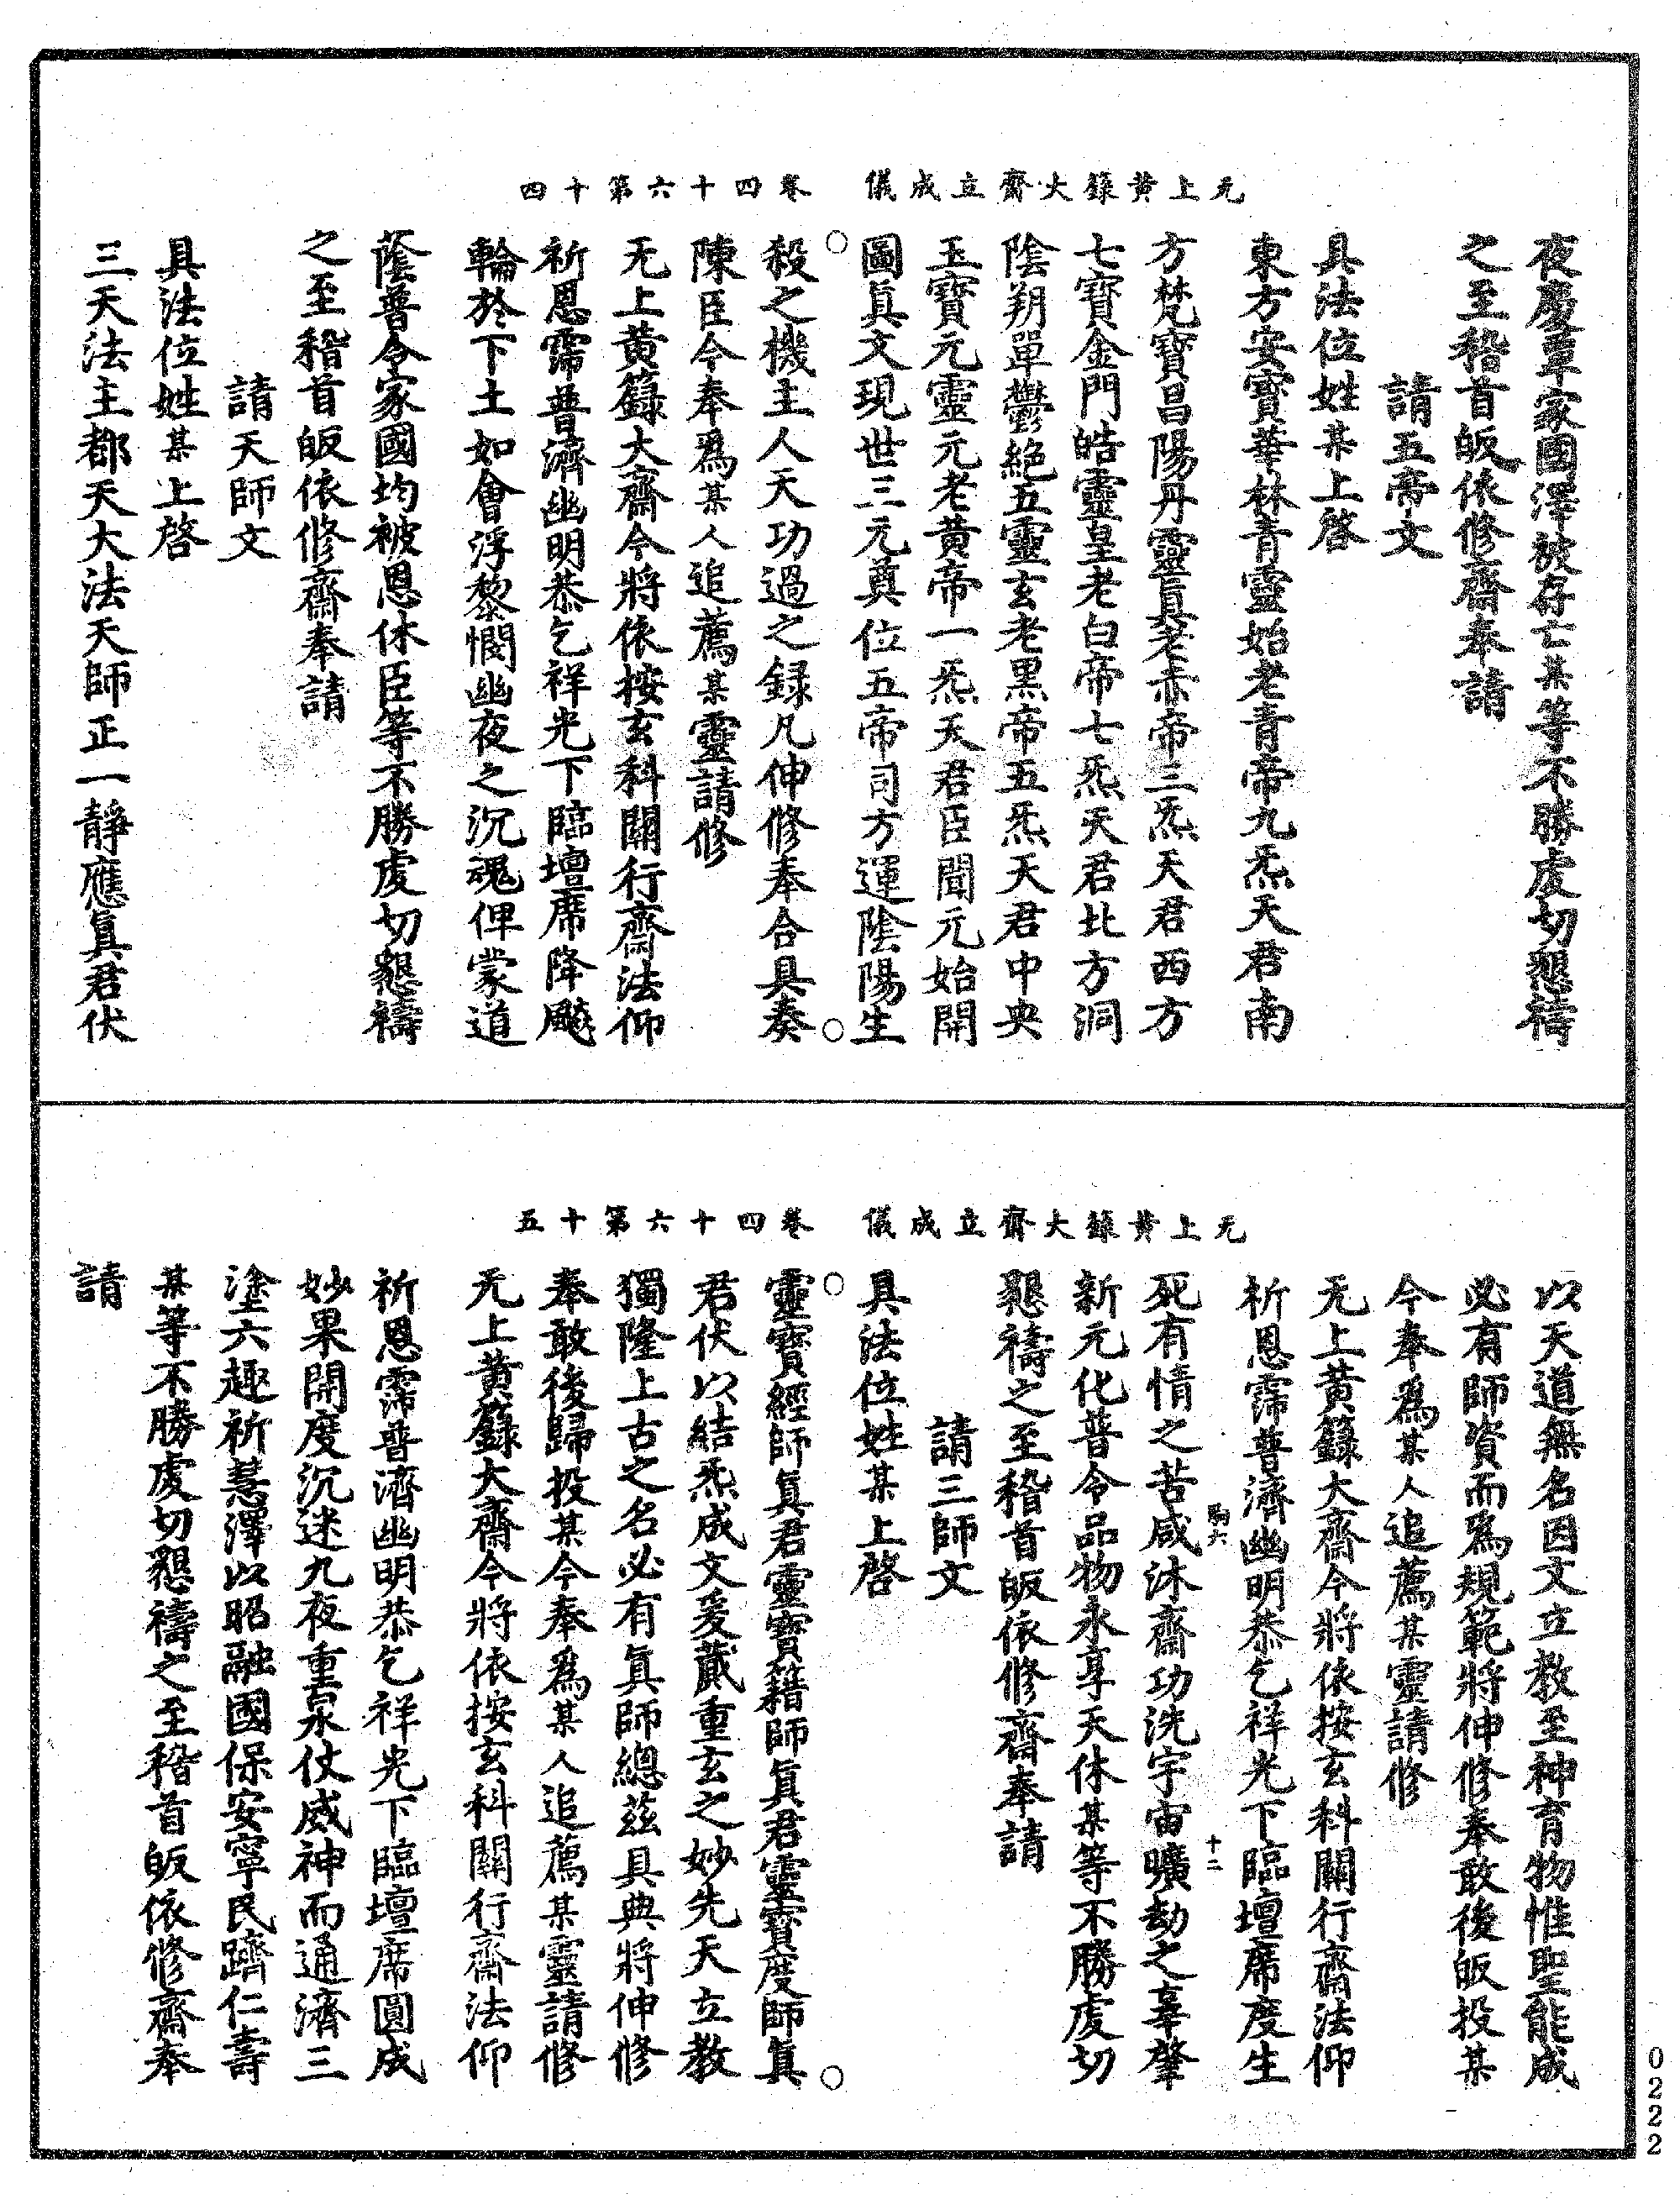 无上黃籙大齋立成儀　卷四十六第十四
夜慶覃家國澤被存亡某等不勝虔切懇禱
之至稽首皈依修齋奉請
請五帝文
具法位姓某上啓
東方安寶華林青靈始老青帝九炁天君南
方梵寶昌陽丹靈眞老赤帝三炁天君西方
七寶金門皓靈皇老白帝七炁天君北方洞
陰朔單鬱絕五靈玄老黑帝五炁天君中央
玉寶元靈元老黃帝一炁天君臣聞元始開
圖眞文現世三元奠位五帝司方運陰陽生
殺之機主人天功過之録凡伸修奉合具奏
陳臣今奉爲某人追薦某靈請修
无上黃籙大齋今將依按玄科關行齋法仰
祈恩霈普濟幽明恭乞祥光下臨壇席降飈
輪於下土如會浮黎憫幽夜之沉魂俾蒙道
蔭普令家國均被恩休臣等不勝虔切懇禱
之至稽首皈依修齋奉請
請天師文
具法位姓某上啓
三天法主都天大法天師正一靜應眞君伏
无上黃籙大齋立成儀　卷四十六第十五
以天道無名因文立教至神育物惟聖能成
必有師資而爲規範將伸修奉敢後皈投某
今奉爲某人追薦某靈請修
无上黃籙大齋今將依按玄科關行齋法仰
祈恩霈普濟幽明恭乞祥光下臨壇席度生
十二
死有情之苦咸沐齋功洗宇宙曠劫之辜肇
新元化普令品物永享天休某等不勝虔切
懇禱之至稽首皈依修齋奉請
請三師文
具法位姓某上啓
靈寶經師眞君靈寶籍師眞君靈寶度師眞
君伏以結炁成文爰蕆重玄之妙先天立教
獨隆上古之名必有眞師總茲具典將伸修
奉敢後歸投某今奉爲某人追薦某靈請修
无上黃籙大齋今將依按玄科關行齋法仰
祈恩霈普濟幽明恭乞祥光下臨壇席圓成
妙果開度沉迷九夜重泉仗威神而通濟三
塗六趣祈慧澤以昭融國保安寧民躋仁壽
某等不勝虔切懇禱之至稽首皈依修齋奉
請
0222